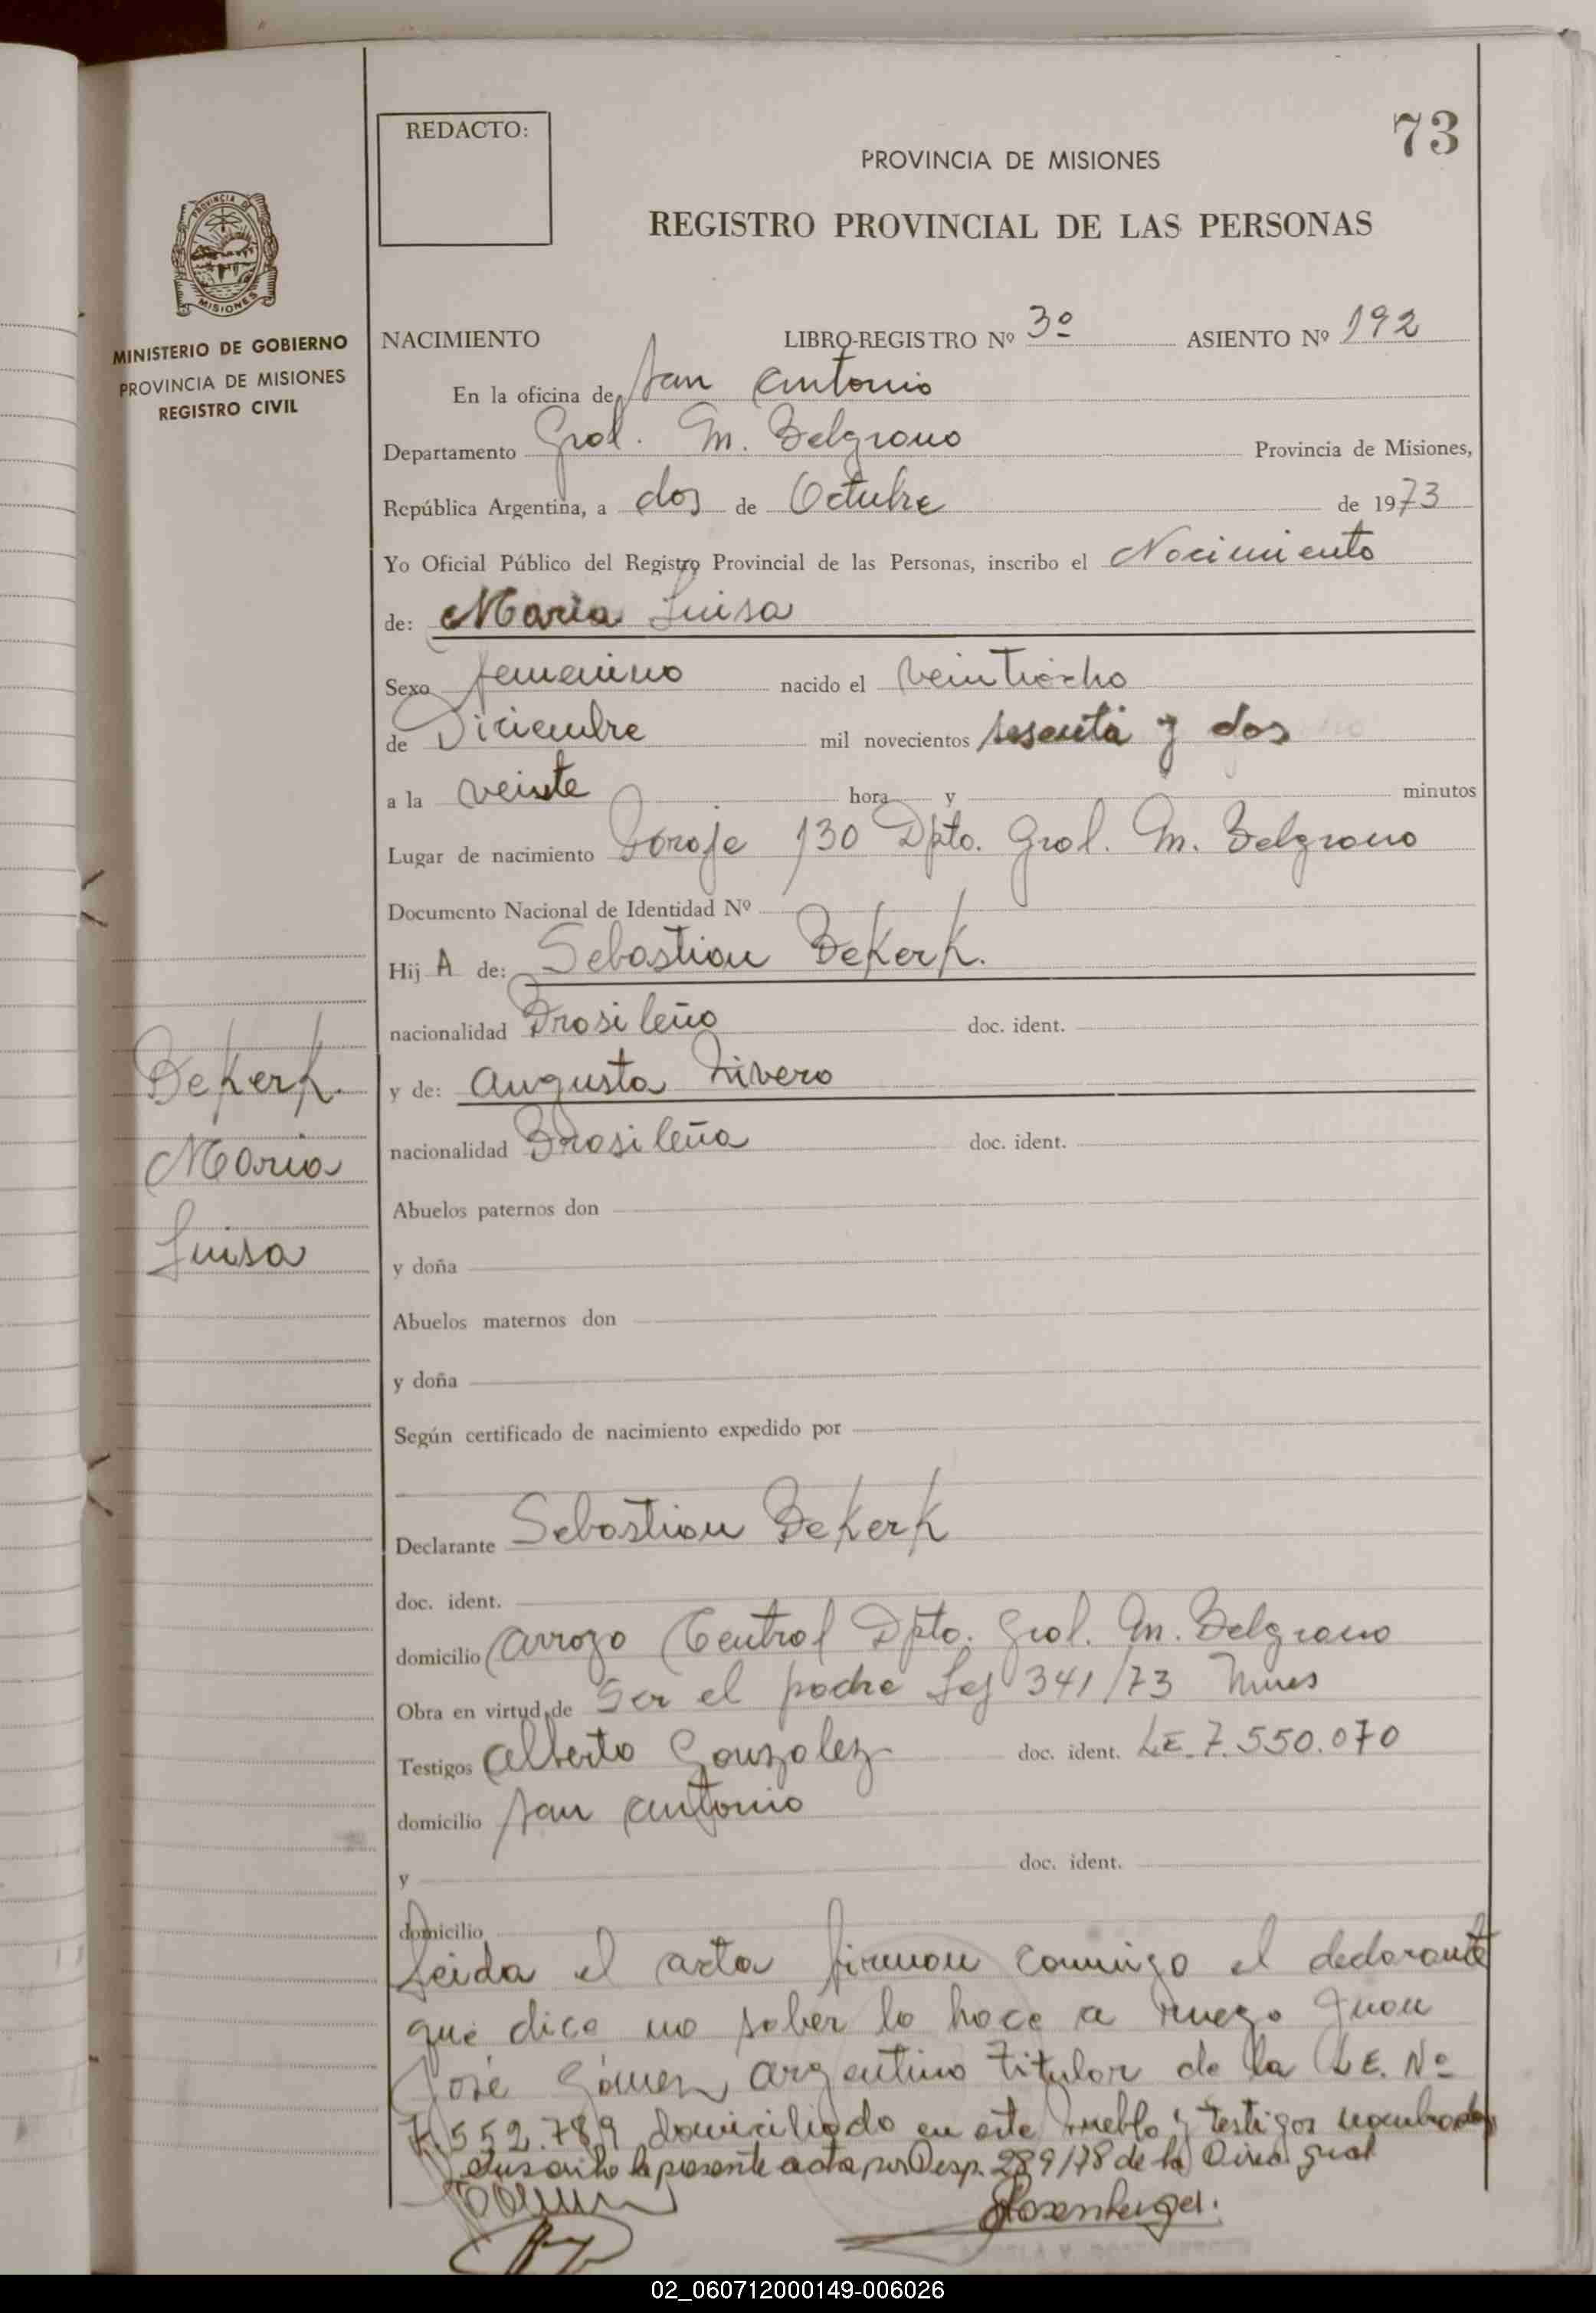 73
REDACTO:
PROVINCIA DE MISIONES
REGISTRO PROVINCIAL DE LAS PERSONAS
PROVINCIA DE
MISIONES
MINISTERIO DE GOBIERNO
PROVINCIA DE MISIONES
REGISTRO CIVIL
NACIMIENTO LIBRO-REGISTRO Nº 3º ASIENTO Nº 192
En la oficina de San Antonio
Departamento Gral. M. Belgrano Provincia de Misiones,
República Argentina, a dos de Octubre de 1973
Yo Oficial Público del Registro Provincial de las Personas, inscribo el Nacimiento
de: Maria Luisa
Sexo femenino nacido el veintiocho
de Diciembre mil novecientos sesenta y dos
a la veinte hora y minutos
Lugar de nacimiento Paraje 130 Dpto. Gral. M. Belgrano
Documento Nacional de Identidad Nº
Hij A de: Sebastian BeKerK.
nacionalidad Brasileño doc. ident.
y de: Augusta Rivero
nacionalidad Brasileña doc. ident.
BeKerK.
Maria
Luisa
Abuelos paternos don
y doña
Abuelos maternos don
y doña
Según certificado de nacimiento expedido por
Declarante Sebastian BeKerK
doc. ident.
domicilio Arroyo Central Dpto. Gral. M. Belgrano
Obra en virtud de Ser el padre Ley 341/73 Mnes
Testigos Alberto Gonzalez doc. ident. L.E. 7.550.070
domicilio San Antonio
y doc. ident.
domicilio
Leida el acta firman conmigo el declarante
que dice no saber lo hace a ruego Juan
José Gómez, Argentino titular de la L.E. Nº
7.552.789 domiciliado en este Pueblo y testigos nombrados
Suscribo la presente acta por Desp. 289/78 de la Direc. gral
Rosenberger.
02_060712000149-006026